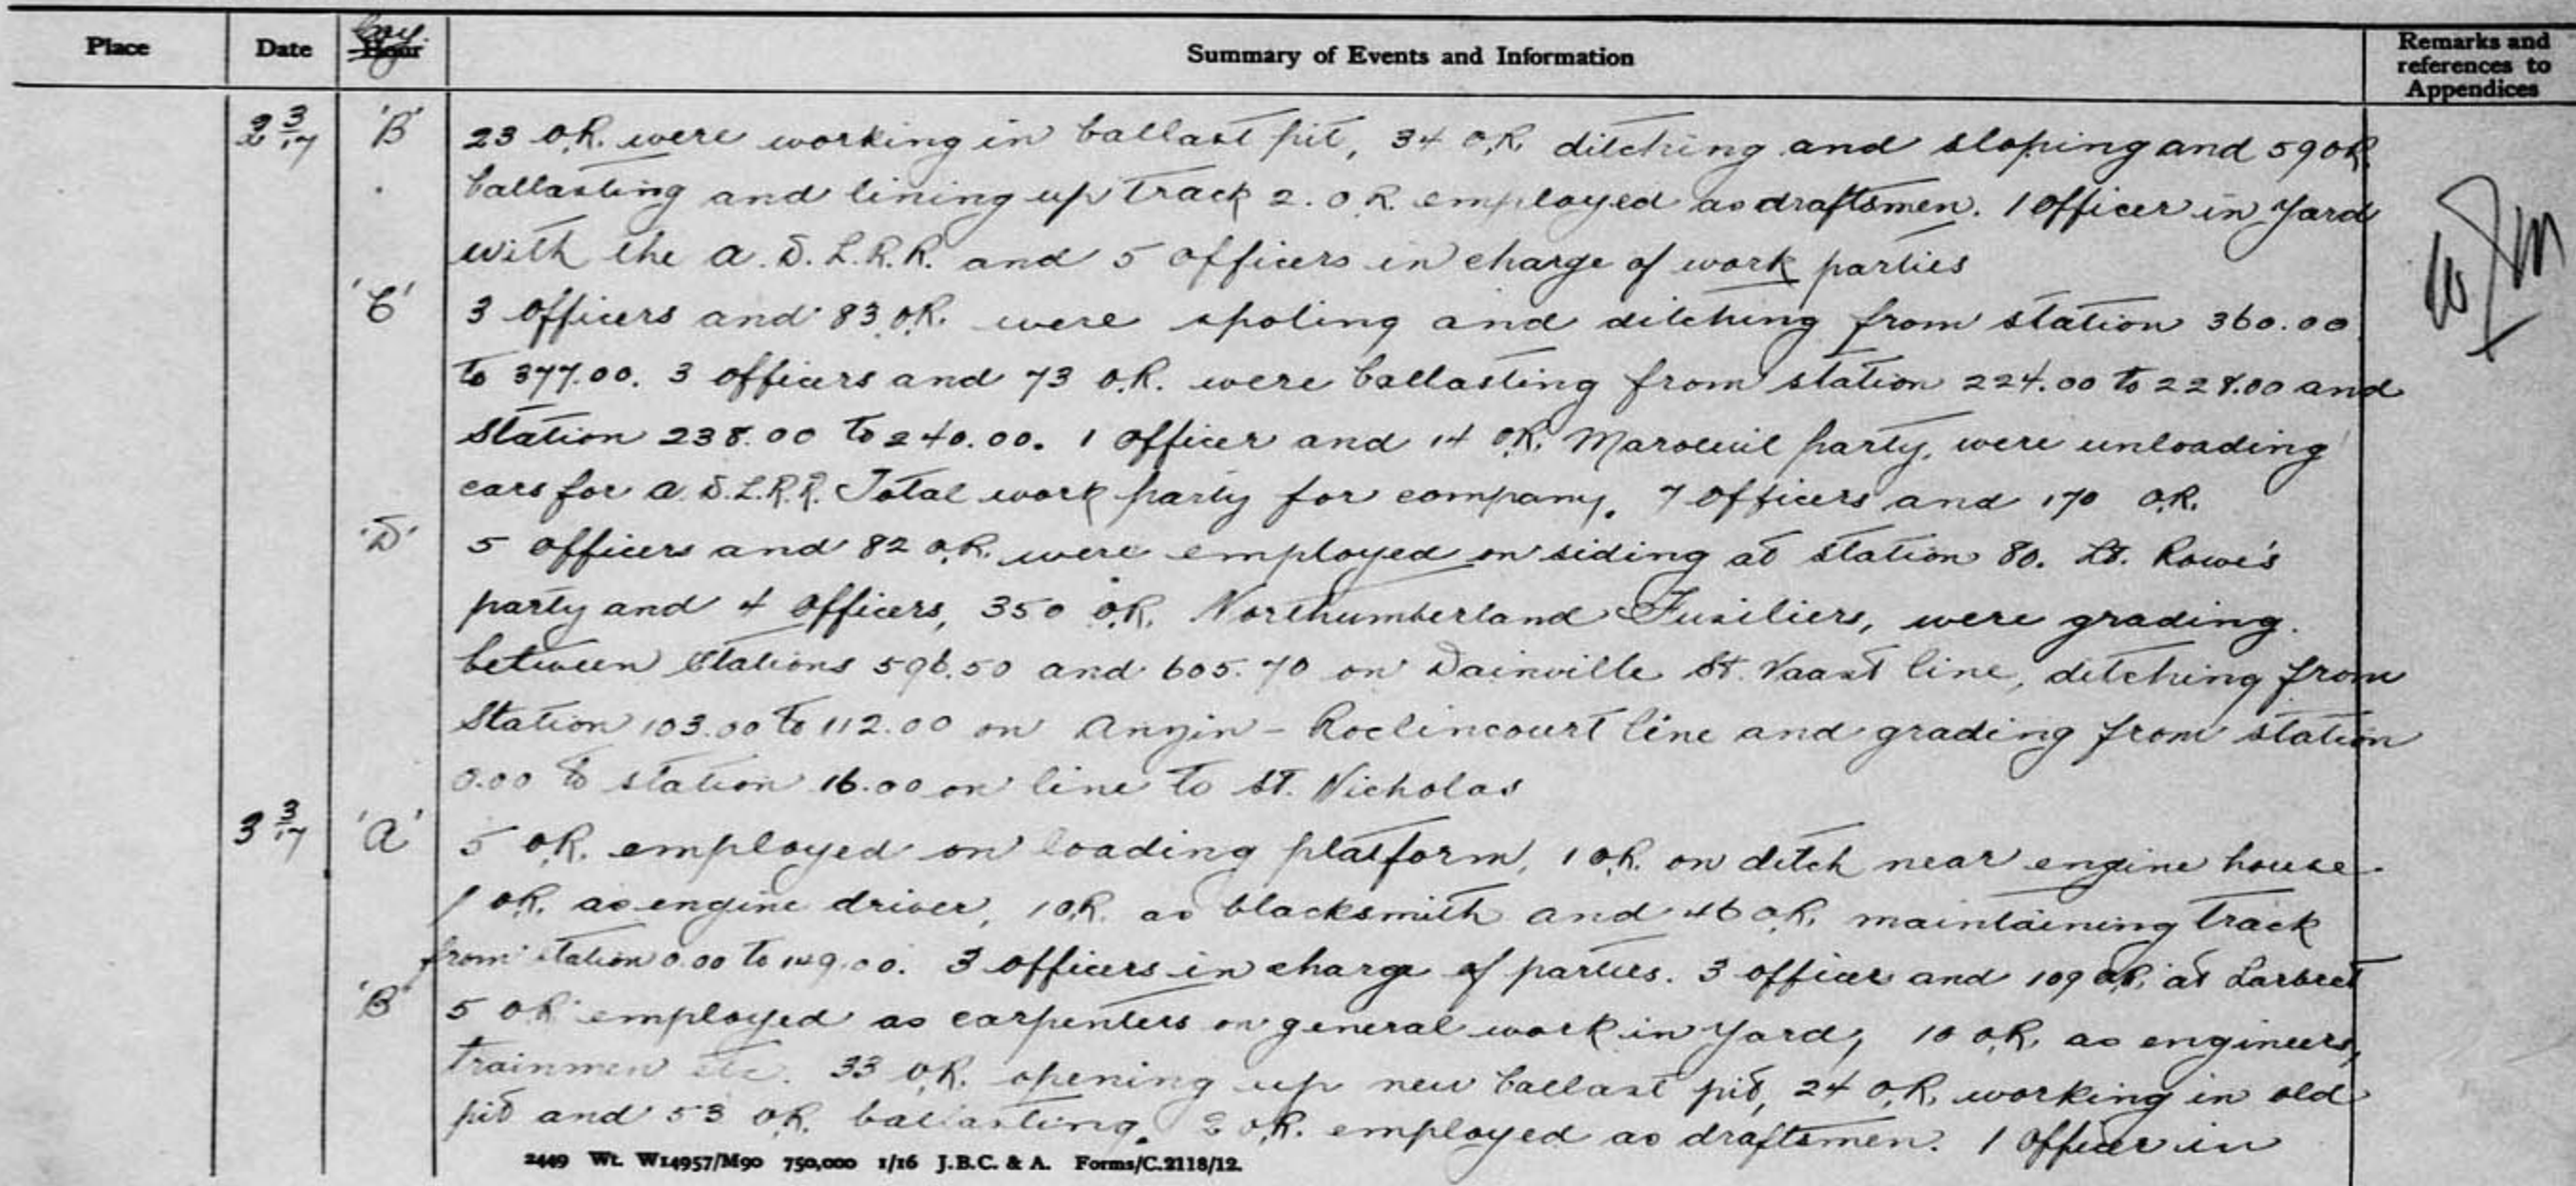 Place Date Hour Coy. Summary of Events and Information Remarks and references to Appendices
2 3/17 'B' 23 O.R. were working in ballast pit, 34 O.R. ditching and sloping and 59 O.R.
ballasting and lining up track 2. O.R. employed as draftsmen. 1 Officer in Yard
with the A.D.L.R.R. and 5 Officers in charge of work parties
'C' 3 Officers and 83 O.R. were spoling and ditching from station 360.00
to 377.00. 3 Officers and 73 O.R. were ballasting from station 224.00 to 228.00 and
Station 238.00 to 240.00. 1 Officer and 14 O.R. Maroeuil party, were unloading
cars for A.D.L.R.R. Total work party for company. 7 Officers and 170 O.R.
'D' 5 Officers and 82 O.R. were employed on siding at station 80. Lt. Rowe's
party and 4 Officers, 350 O.R. Northumberland Fusiliers, were grading.
between Stations 596.50 and 605.70 on Dainville St. Vaast line, ditching from
Station 103.00 to 112.00 on Anzin - Roclincourt line and grading from station
0.00 to station 16.00 on line to St. Nicholas
3 3/17 'A' 5 O.R. employed on loading platform, 1 O.R. on ditch near engine house.
1 O.R. as engine driver, 1 O.R. as blacksmith and 46 O.R. maintaining track
from station 0.00 to 149.00. 3 Officers in charge of parties. 3 officer and 109 O.R. at Larbret
'B' 5 O.R. employed as carpenters on general work in Yard, 10 O.R. as engineers,
trainmen etc. 33 O.R. opening up new ballast pit, 24 O.R. working in old
pit and 53 O.R. ballasting. 2 O.R. employed as draftsmen. 1 Officer in
2449 Wt. W14957/M90 750,000 1/16 J.B.C. & A. Forms/C.2118/12.